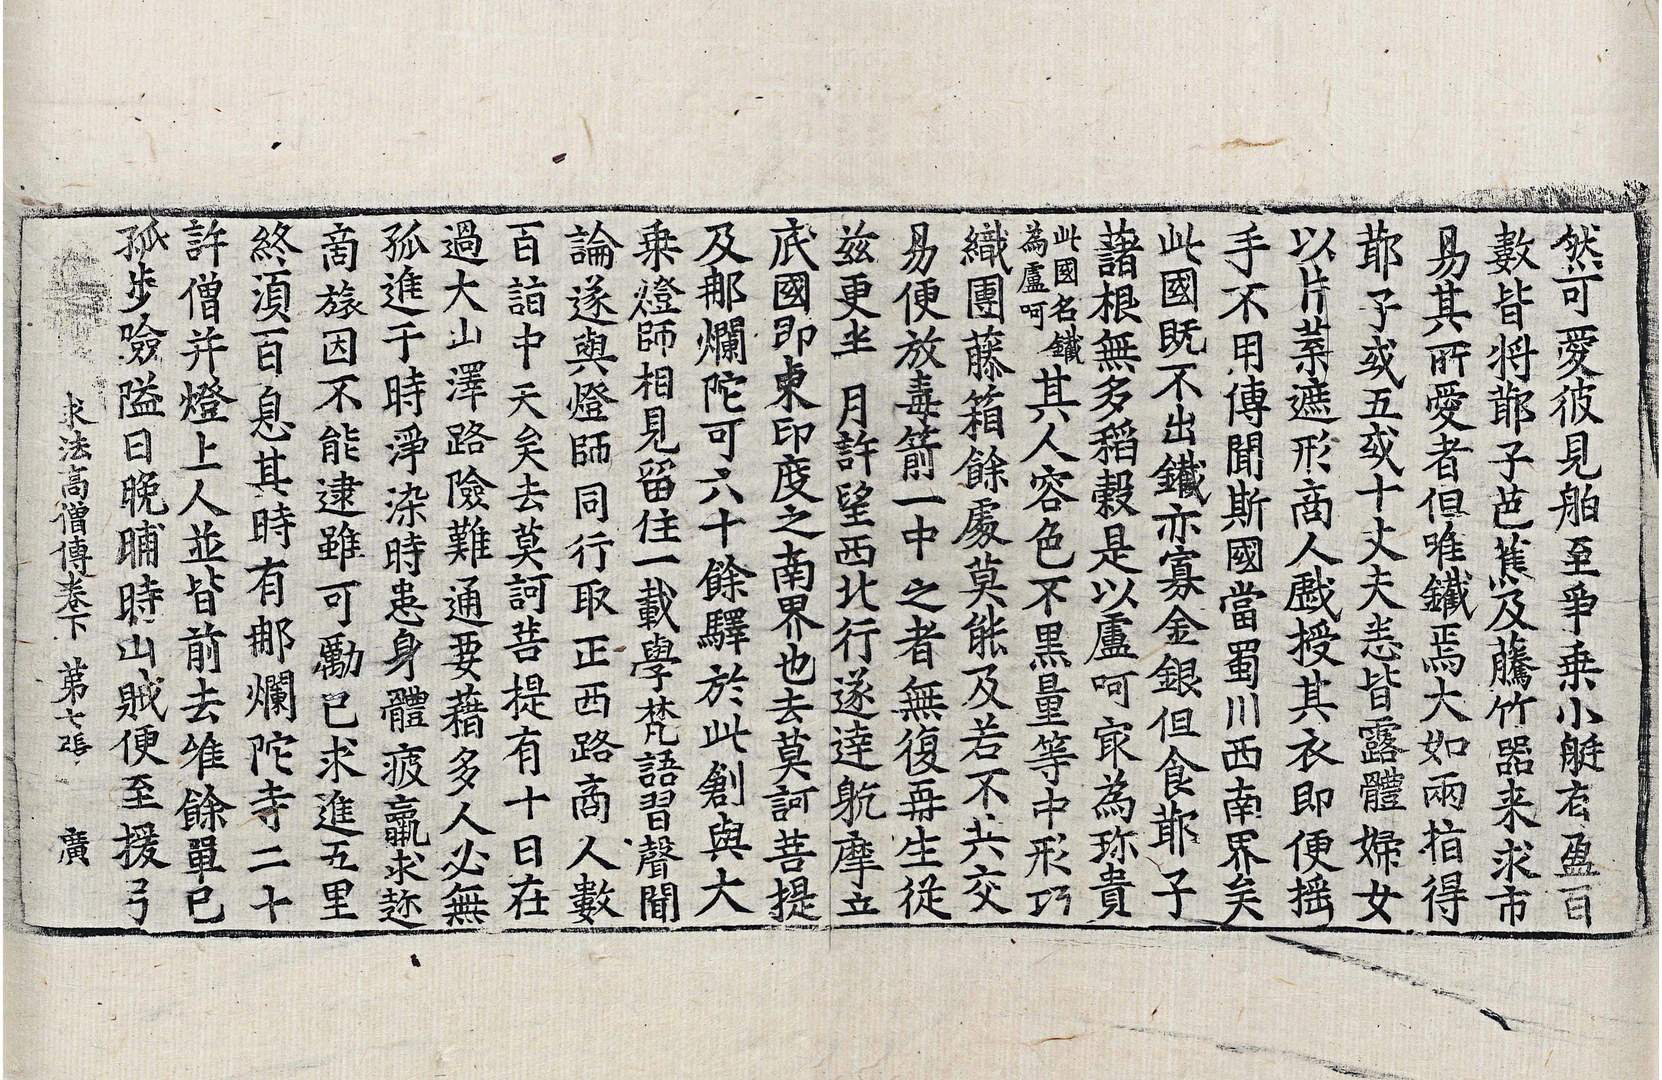 然可愛彼見舶至爭乗小艇有盈百
數皆將䣀子芭蕉及藤竹器来求市
易其所愛者但唯鐵焉大如兩指得
䣀子或五或十丈夫悉皆露體婦女
以片葉遮形商人戲授其衣即便摇
手不用傳聞斯國當蜀川西南界矣
此國既不出鐵亦寡金銀但食䣀子
藷根無多稻穀是以盧呵㝡為珎貴
此國名鐵為盧呵其人容色不黑量等中形巧
織團藤箱餘處莫能及若不共交
易便放毒箭一中之者無復再生従
兹更半月許望西北行遂達躭摩立
底國即東印度之南界也去莫訶菩提
及那爛陀可六十餘驛於此創與大
乗燈師相見留住一載學梵語習聲聞
論遂與燈師同行取正西路商人數
百詣中天矣去莫訶菩提有十日在
過大山澤路險難通要藉多人必無
孤進于時淨染時患身體疲羸求趂
商旅因不能逮雖可勵已求進五里
終湏百息其時有那爛陀寺二十
許僧并燈上人並皆前去唯餘單已
孤步險隘日晚晡時山賊便至援弓
求法高僧傳卷下 第七張 廣